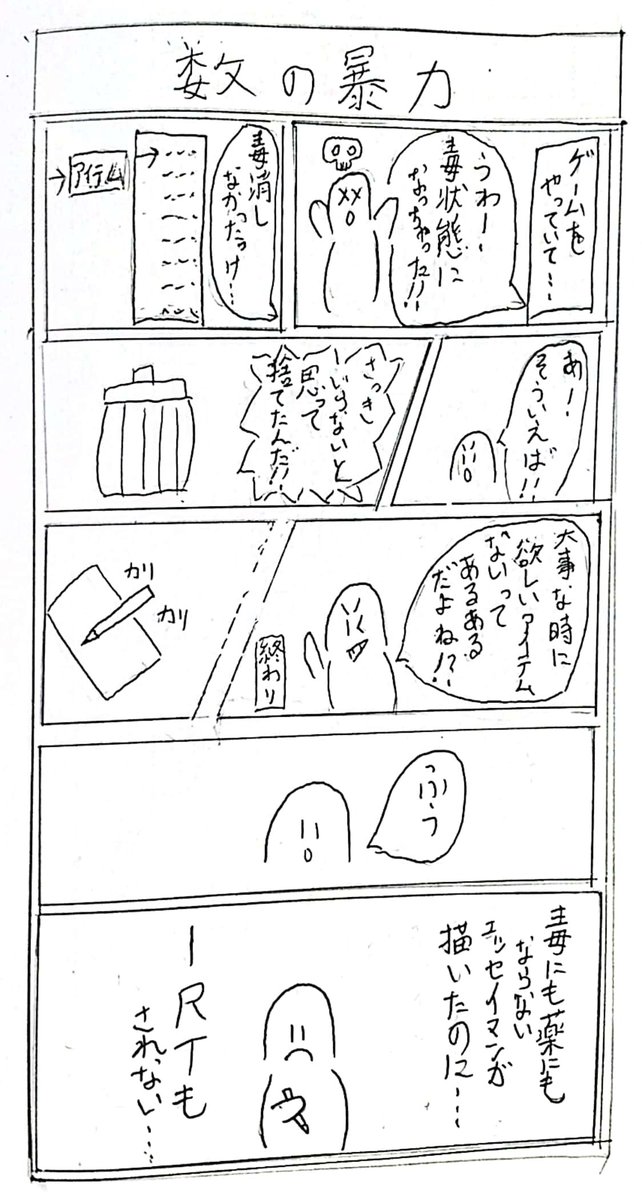 数の暴力
ゲームを
やっていて…
うわー、
毒状態に
なっちゃった!!
毒消し
なかったっけ…
アイテム
あ!
そういえば!!
さっき
いらないと
思って
捨てたんだ!!
大事な時に
欲しいアイテム
ないって
あるある
だよね!?
終わり
カリ
カリ
ふぅ
毒にも薬にも
ならない
エッセイマンガ
描いたのに…
1RTも
されない…